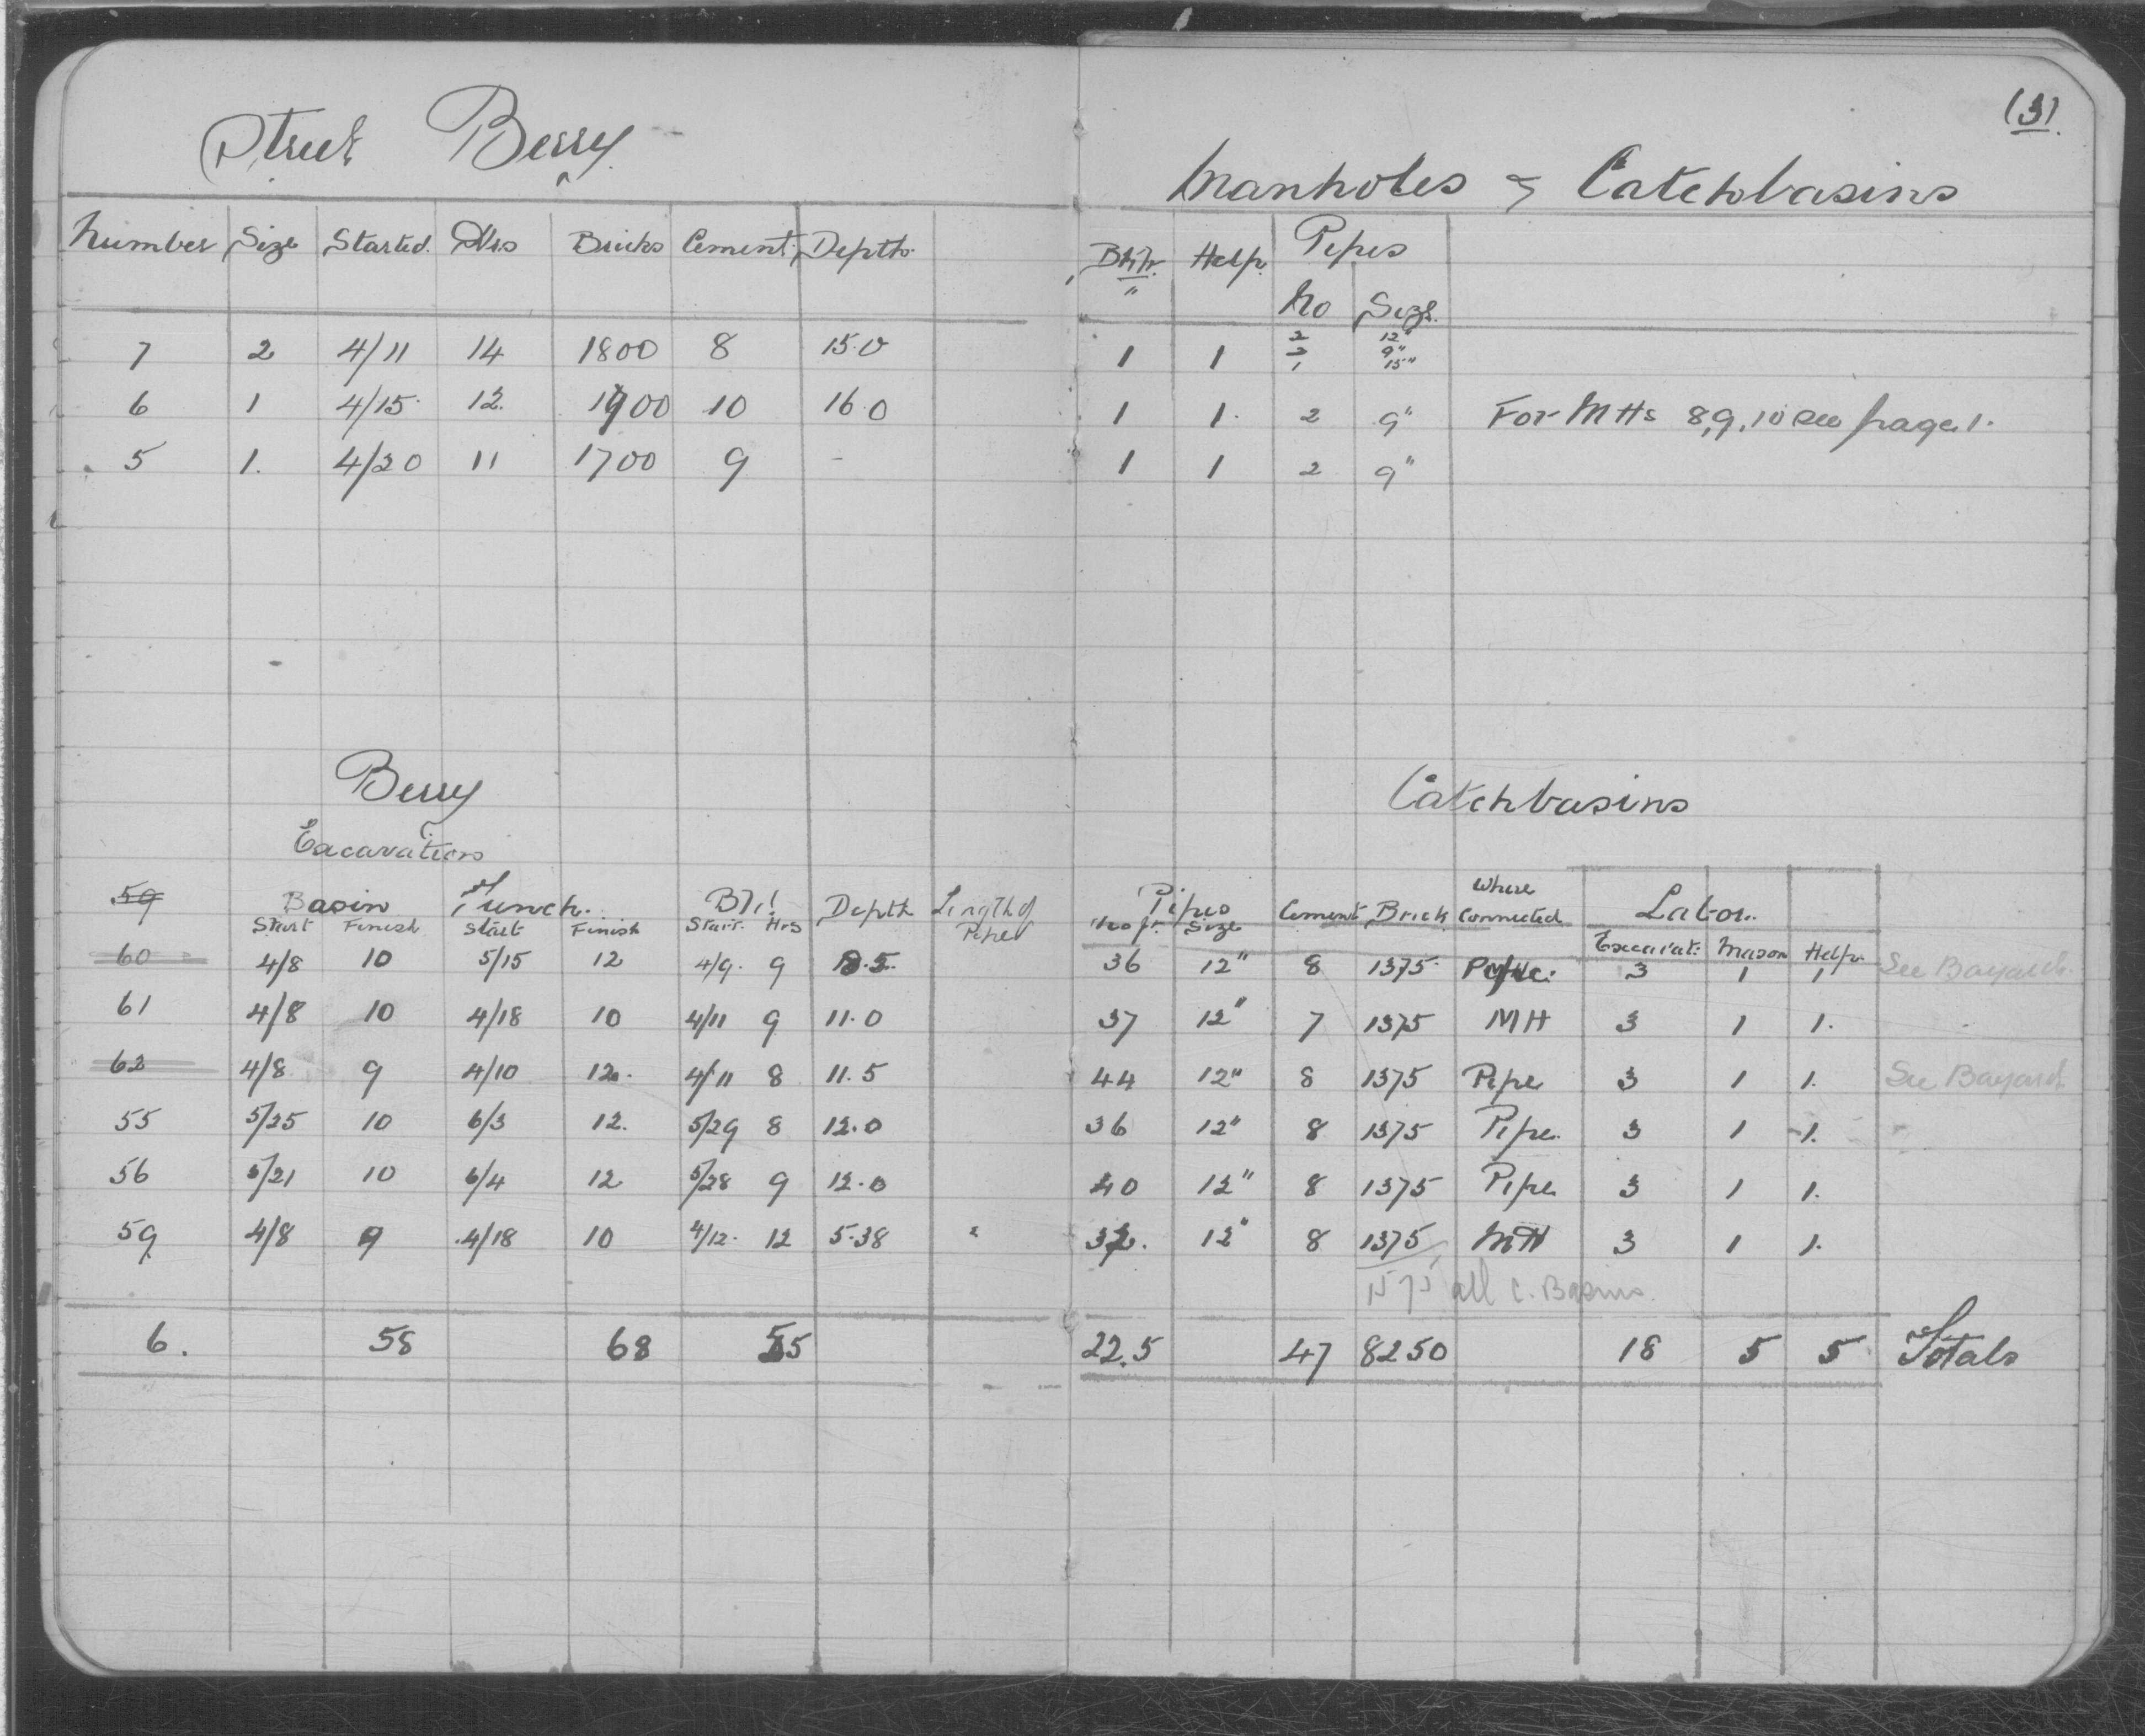 (3).
Street Berry
Manholes & Catchbasins
Number Size Started. Hrs Bricks Cement Depth. Help. Pipes
No Size.
7 2 4/11 14 1800 8 15.0 1 1 2 12"
2 9"
1 15"
6 1 4/15 12. 1900 10 16.0 1 1. 2 9" For MHs 8,9,10 see page 1.
5 1. 4/20 11 1700 9 - 1 1 2 9"
Berry
Catchbasins
Excavation
59 Basin Trench. Depth Length of Pipes Cement Brick Where Connected Labor.
Start Finish Start Finish Start. Hrs Pipe Size Excavat. Mason Help.
60 4/8 10 5/15 12 4/9. 9 36 12" 8 1375 Pipe. 3 1 1 See Bayard.
61 4/8 10 4/18 10 4/11 9 11.0 37 12" 7 1375 MH 3 1 1.
62 4/8 9 4/10 12. 4/11 8 11.5 44 12" 8 1375 Pipe 3 1 1. See Bayard
55 5/25 10 6/3 12. 5/29 8 12.0 36 12" 8 1375 Pipe. 3 1 1.
56 5/21 10 6/4 12 5/28 9 12.0 40 12" 8 1375 Pipe 3 1 1.
59 4/8 9 4/18 10 4/12. 12 5.38 32. 12" 8 1375 MH 3 1 1.
1575 all C. Basins.
6. 58 68 55 22.5 47 8250 18 5 5 Totals